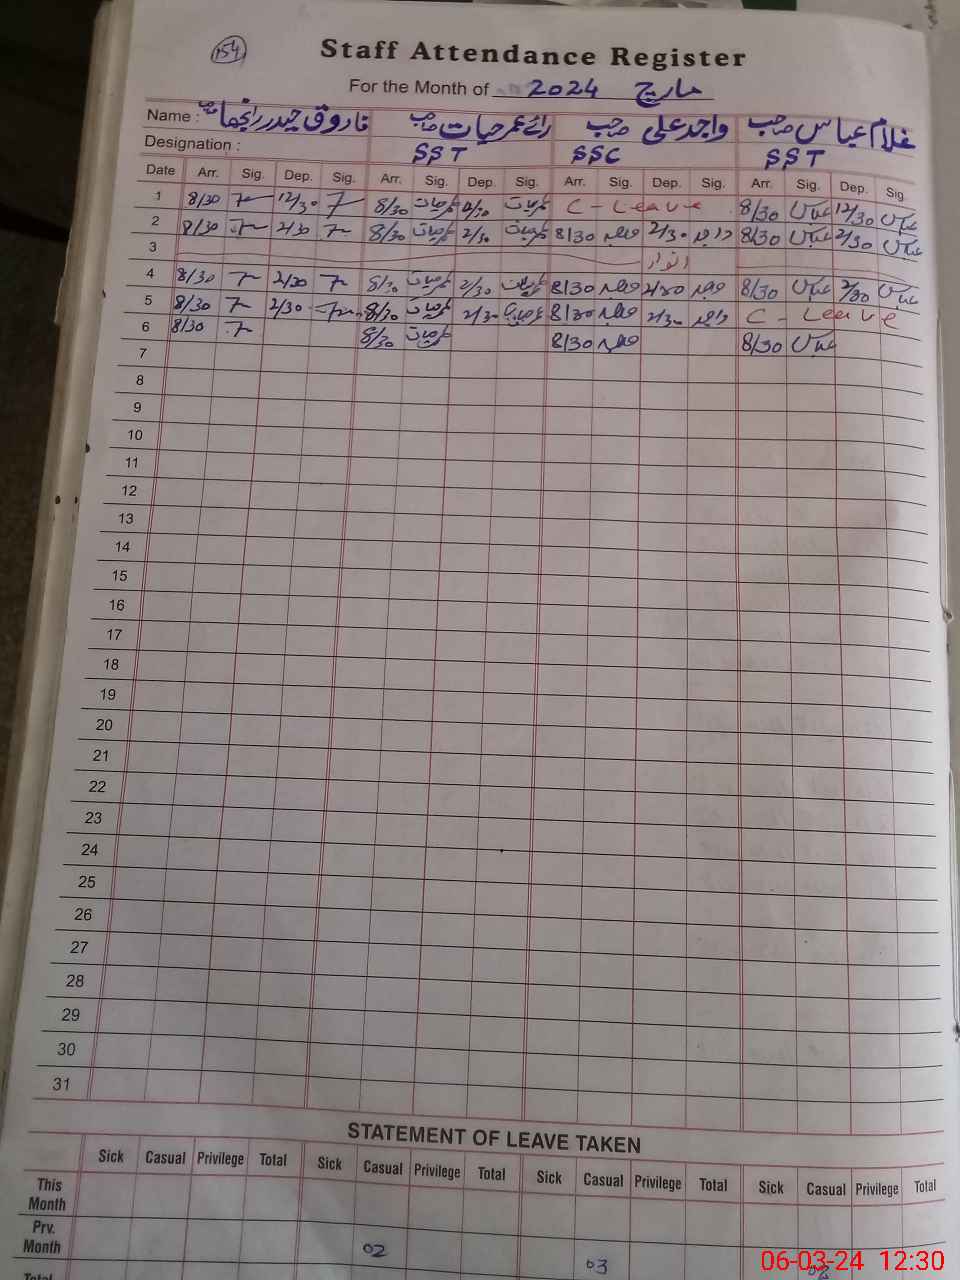 154
Staff Attendance Register
For the Month of 2024 مارچ
Name : فاروق حیدر رانجھا صاحب رائے عمر حیات صاحب واجد علی صاحب غلام عباس صاحب
Designation : SST SSC SST
Date Arr. Sig. Dep. Sig. Arr. Sig. Dep. Sig. Arr. Sig. Dep. Sig. Arr. Sig. Dep. Sig.
1 8/30 12/30 8/30 عمرحیات 12/30 عمرحیات C - Leave 8/30 عباس 12/30 عباس
2 8/30 2/30 8/30 عمرحیات 2/30 عمرحیات 8/30 واجد 2/30 واجد 8/30 عباس 2/30 عباس
3 اتوار
4 8/30 2/30 8/30 عمرحیات 2/30 عمرحیات 8/30 واجد 2/30 واجد 8/30 عباس 2/30 عباس
5 8/30 2/30 8/30 عمرحیات 2/30 عمرحیات 8/30 واجد 2/30 واجد C - Leave
6 8/30 8/30 عمرحیات 8/30 واجد 8/30 عباس
7
8
9
10
11
12
13
14
15
16
17
18
19
20
21
22
23
24
25
26
27
28
29
30
31
STATEMENT OF LEAVE TAKEN
Sick Casual Privilege Total Sick Casual Privilege Total Sick Casual Privilege Total Sick Casual Privilege Total
This Month
Prv. Month 02 03
Total
06-03-24 12:30